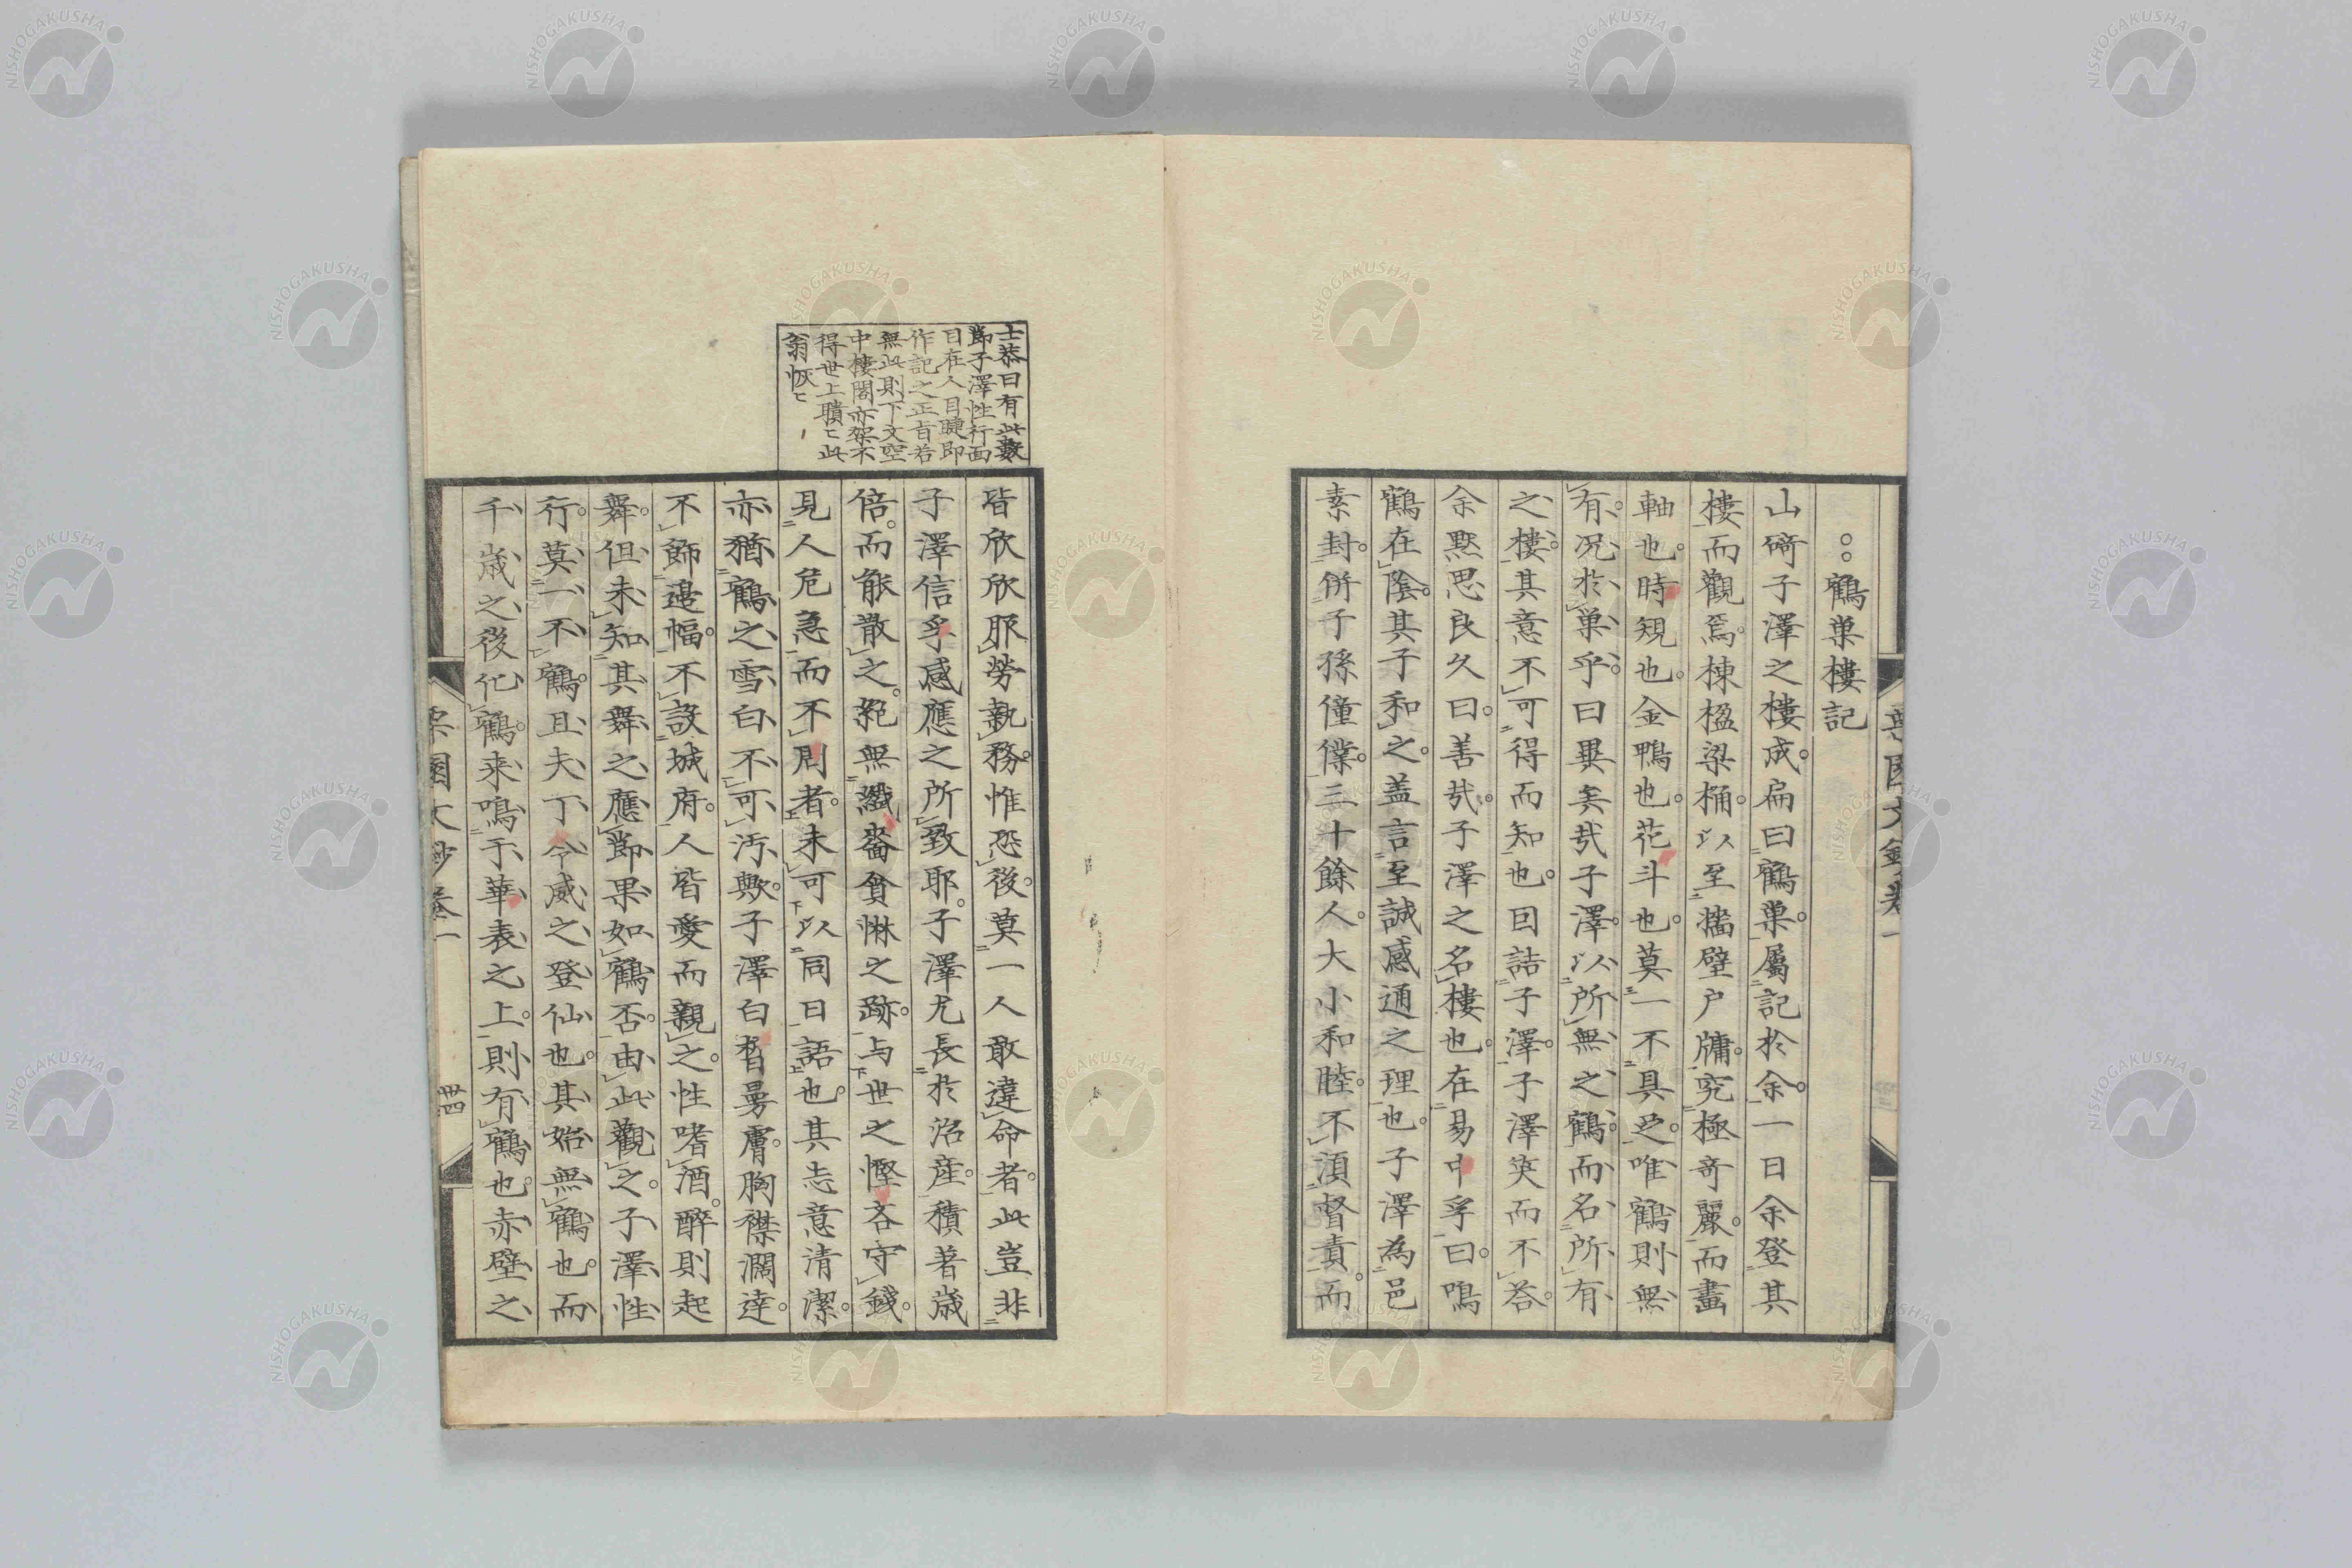 鶴巣樓記
山碕子澤之樓成扁曰鶴巣屬記於余一日余登其
樓而觀焉棟楹梁桷以至墻壁户牗究極奇麗而畫
軸也時規也金鴨也花斗也莫一不具足唯鶴則無
有况於巣乎曰異矣哉子澤以所無之鶴而名所有
之樓其意不可得而知也因詰子澤子澤笑而不荅
余黙思良久曰善哉子澤之名樓也在易中孚曰鳴
鶴在陰其子和之盖言至誠感通之理也子澤為邑
素封併子孫僮僕三十餘人大小和睦不湏督責而
士恭曰有此數
節子澤性行面
目在人目睫即
作記之正旨若
無此則下文空
中樓閣亦架不
得世上聵〻此
翁恢〻
皆欣欣服勞執務惟恐後莫一人敢違命者此豈非
子澤信孚感應之所致耶子澤尤長於治産積著歳
倍而能散之絶無纖嗇貪惏之跡与世之慳吝守錢
見人危急而不賙者未可以同日語也其志意清潔
亦猶鶴之雪白不可汚歟子澤白皙曼膚胸襟濶達
不飾邉幅不設城府人皆愛而親之性嗜酒醉則起
舞但未知其舞之應節果如鶴否由此觀之子澤性
行莫一不鶴且夫丁令威之登仙也其始無鶴也而
千歳之後化鶴来鳴于華表之上則有鶴也赤壁之
卌四
NISHOGAKUSHA